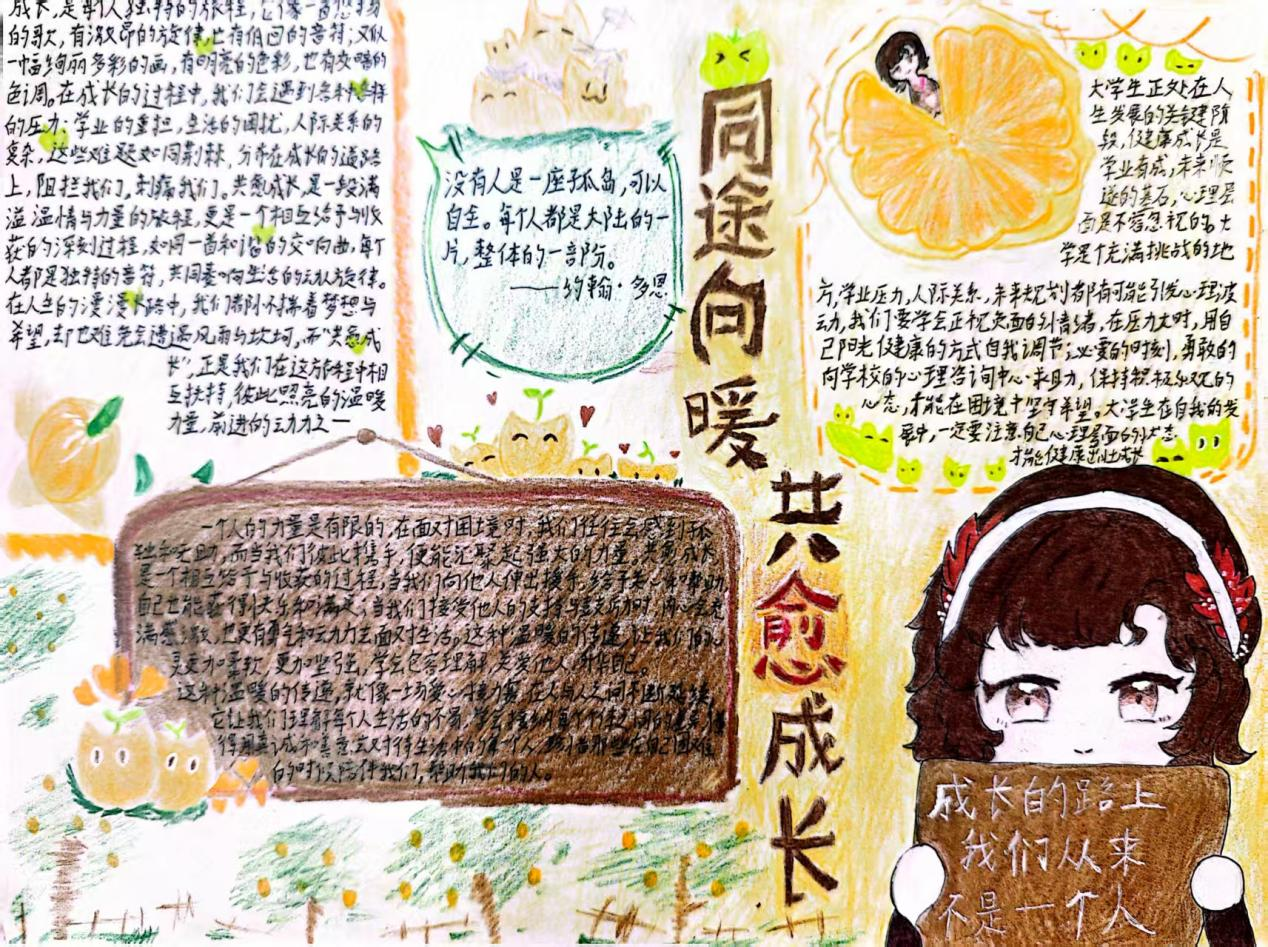 成长，是每个人独特的旅程，它像一首悠扬
的歌，有激昂的旋律，也有低回的音符；又似
一幅绚丽多彩的画，有明亮的色彩，也有灰暗的
色调。在成长的过程中，我们会遇到各种各样
的压力：学业的重担，生活的困扰，人际关系的
复杂，这些难题如同荆棘，分布在成长的道路
上，阻拦我们，刺痛我们。共愈成长，是一段满
溢温情与力量的旅程，更是一个相互给予与收
获的深刻过程，如同一首和谐的交响曲，每个
人都是独特的音符，共同奏响生活的动人旋律。
在人生的漫漫长路中，我们都怀揣着梦想与
希望，却也难免会遭遇风雨与坎坷，而“共愈成
长”，正是我们在这方旅程中相
互扶持，彼此照亮的温暖
力量，前进的动力之一
没有人是一座孤岛，可以
自全。每个人都是大陆的一
片，整体的一部份。
——约翰·多恩
同途向暖
共愈成长
大学生正处在人
生发展的关键阶
段，健康成长是
学业有成，未来顺
遂的基石，心理层
面是不容忽视的。大
学是个充满挑战的地
方，学业压力，人际关系，未来规划都有可能引发心理波
动，我们要学会正视负面的情绪，在压力大时，用自
己阳光健康的方式自我调节；必要的时刻，勇敢的
向学校的心理咨询中心求助，保持积极乐观的
心态，才能在困境中坚守希望。大学生在自我的发
展中，一定要注意自己心理层面的状态，
才能健康茁壮成长
一个人的力量是有限的，在面对困境时，我们往往会感到孤
独和无助，而当我们彼此携手，便能汇聚起强大的力量，共愈成长
是一个相互给予与收获的过程，当我们向他人伸出援手，给予关心和帮助
自己也能获得快乐和满足；当我们接受他人的支持与鼓励时，内心会充
满感激，也更有勇气和动力去面对生活。这种温暖的传递，让我们的心
灵更加柔软，更加坚强，学会包容理解，关爱他人，升华自己。
这种温暖的传递，就像一场爱心接力赛，在人与人之间不断延续，
它让我们理解每个人生活的不易，学会接纳每个个体之间的差异，懂
得用真诚和善意去对待生活中的每个人，珍惜那些在自己困难
的时候陪伴我们，帮助我们的人。
成长的路上
我们从来
不是一个人